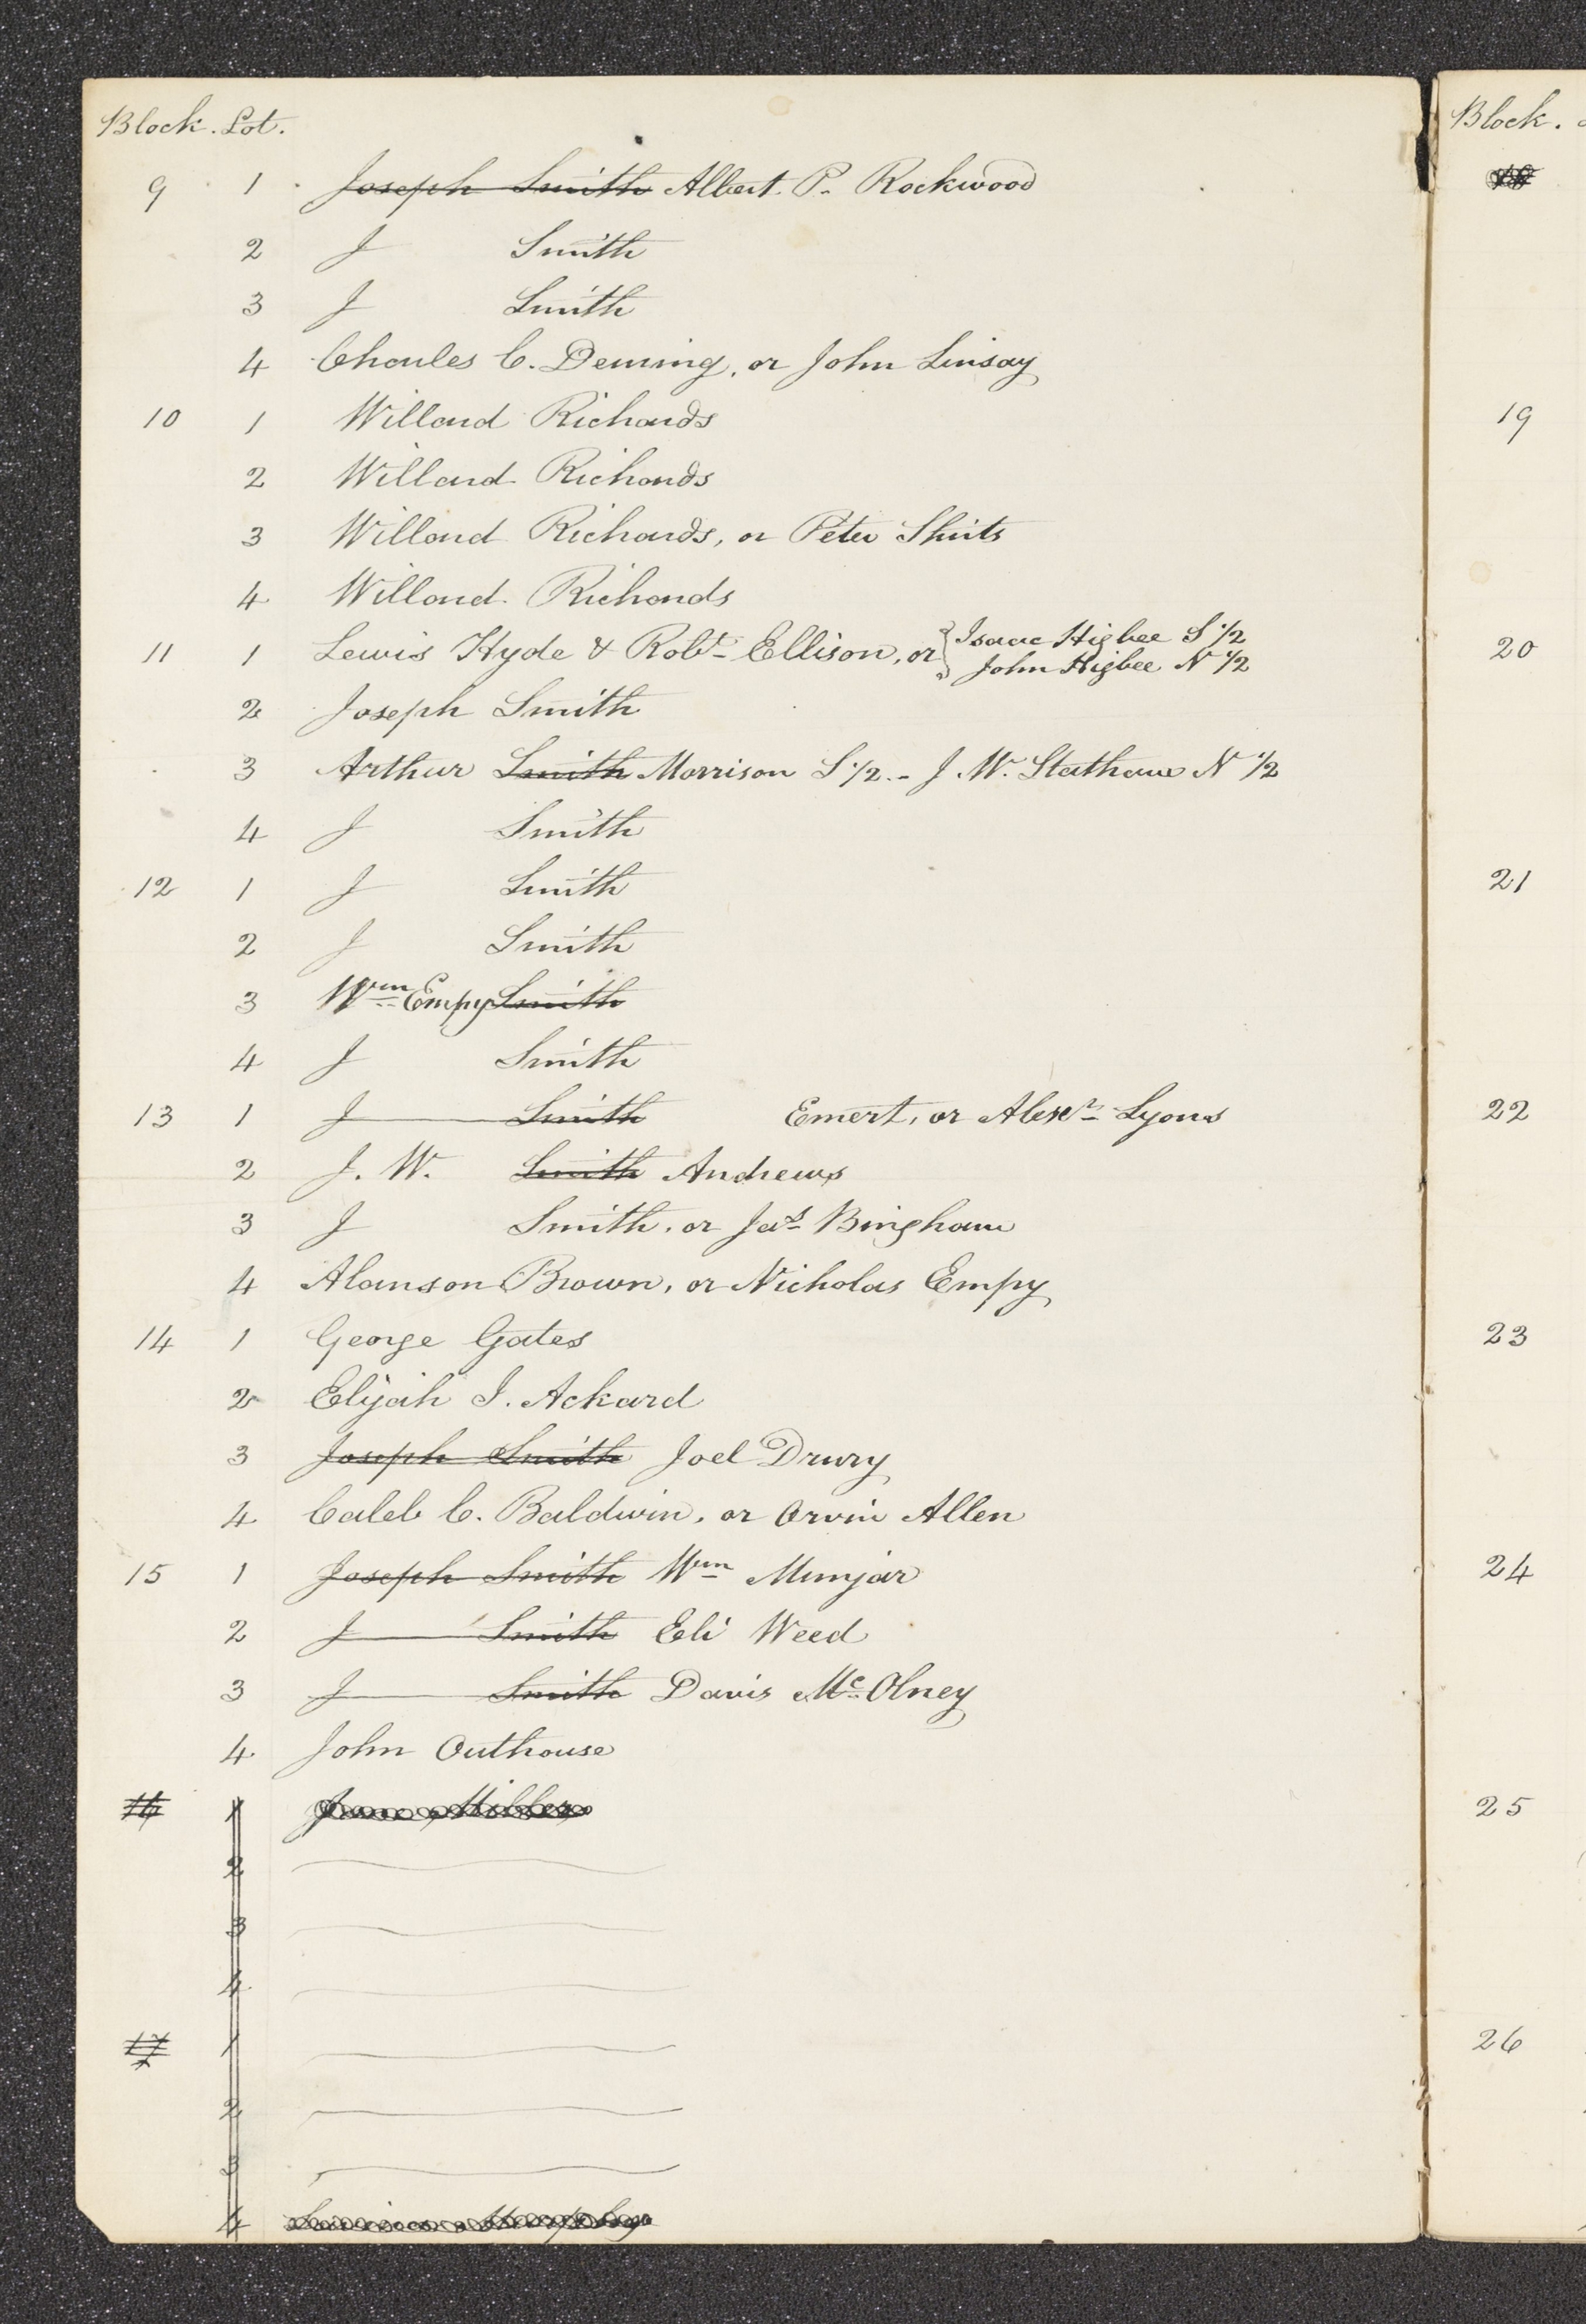 Block. Lot.
9 1 Joseph Smith Albert P. Rockwood
2 J Smith
3 J Smith
4 Charles C. Deming, or John Linsay
10 1 Willard Richards
2 Willard Richards
3 Willard Richards, or Peter Shirts
4 Willard Richards
11 1 Lewis Hyde & Robt. Ellison, or { Isaac Higbee S 1/2
John Higbee N 1/2
2 Joseph Smith
3 Arthur Smith Morrison S 1/2 - J. W. Statham N 1/2
4 J Smith
12 1 J Smith
2 J Smith
3 Wm Empy Smith
4 J Smith
13 1 J Smith Emert, or Alexr Lyons
2 J. W. Smith Andrews
3 J Smith, or Jas Bingham
4 Alanson Brown, or Nicholas Empy
14 1 George Gates
2 Elijah I. Ackard
3 Joseph Smith Joel Drury
4 Caleb C. Baldwin, or Orvin Allen
15 1 Joseph Smith Wm Munjar
2 J Smith Eli Weed
3 J Smith Davis Mc Olney
4 John Outhouse
16 1
2
3
4
17 1
2
3
4
Block.
19
20
21
22
23
24
25
26